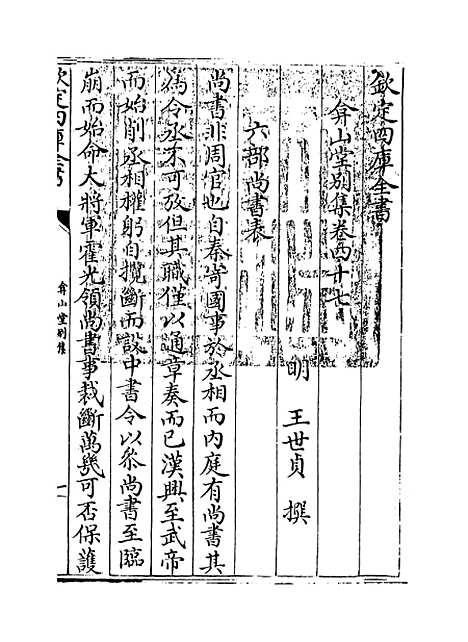 欽定四庫全書
弇山堂別集卷四十七
明 王世貞 撰
六部尚書表
尚書非周官也自秦寄國事於丞相而內庭有尚書其
為令丞不可攷但其職僅以通章奏而已漢興至武帝
而始削丞相權躬自攬斷而設中書令以叅尚書至臨
崩而始命大將軍霍光領尚書事裁斷萬幾可否保護
欽定四庫全書
弇山堂別集
一